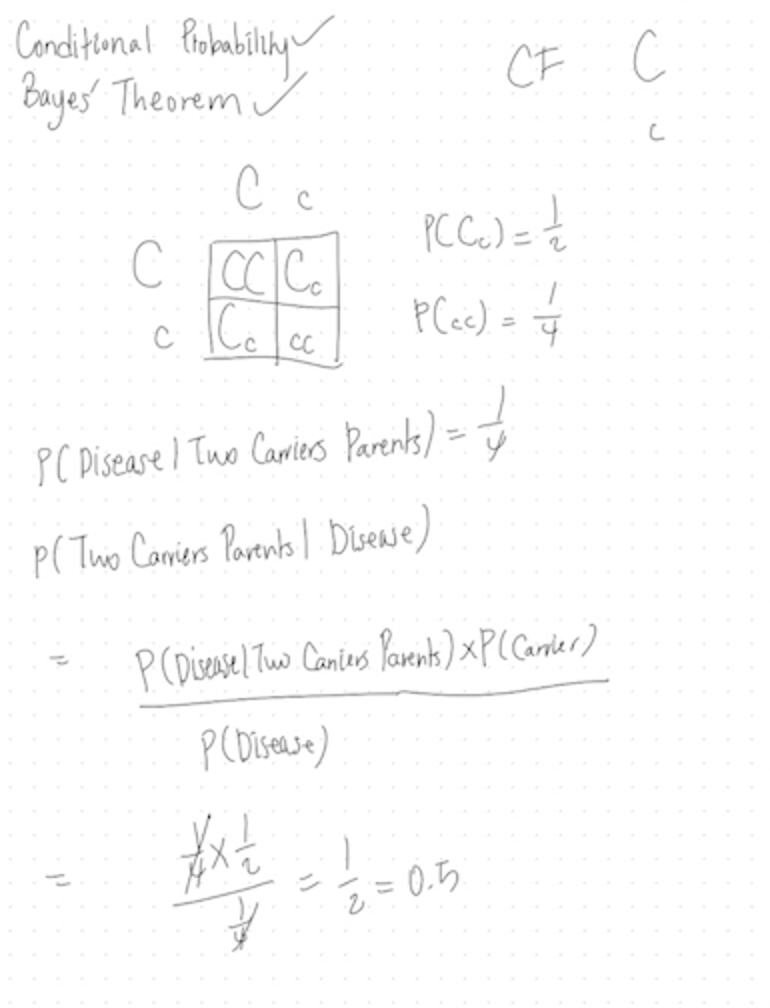 Conditional Probability ✓
Bayes' Theorem ✓
CF C
c
C c
C CC Cc
c Cc cc
P(Cc) = 1/2
P(cc) = 1/4
P(Disease | Two Carriers Parents) = 1/4
P(Two Carriers Parents | Disease)
= P(Disease | Two Carriers Parents) x P(Carrier)
P(Disease)
= 1/4 x 1/2 = 1/2 = 0.5
1/4